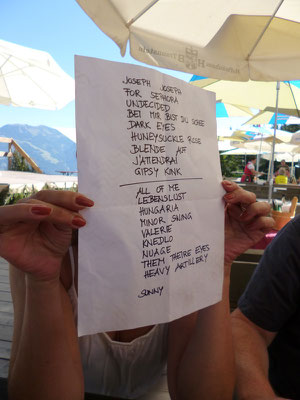 JOSEPH JOSEPH
FOR SEPHORA
UNDECIDED
BEI MIR BIST DU SCHEE
DARK EYES
HONEYSUCKLE ROSE
BLENDE AUF
J'ATTENDRAI
GIPSY KINK
ALL OF ME
LEBENSLUST
HUNGARIA
MINOR SWING
VALERIE
KNEDLO
NUAGE
THEM THEIRE EYES
HEAVY ARTILLERY
SUNNY